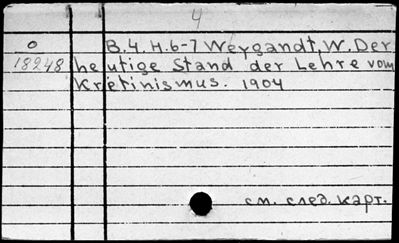 4
o B.4.H.6-7 Weygandt, W. Der
18248 heutige Stand der Lehre vom
Kretinismus. 1904
см. след. карт.